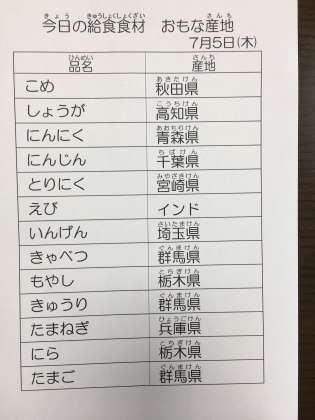 今日の給食食材 おもな産地
7月5日(木)
品名 産地
こめ 秋田県
しょうが 高知県
にんにく 青森県
にんじん 千葉県
とりにく 宮崎県
えび インド
いんげん 埼玉県
きゃべつ 群馬県
もやし 栃木県
きゅうり 群馬県
たまねぎ 兵庫県
にら 栃木県
たまご 群馬県